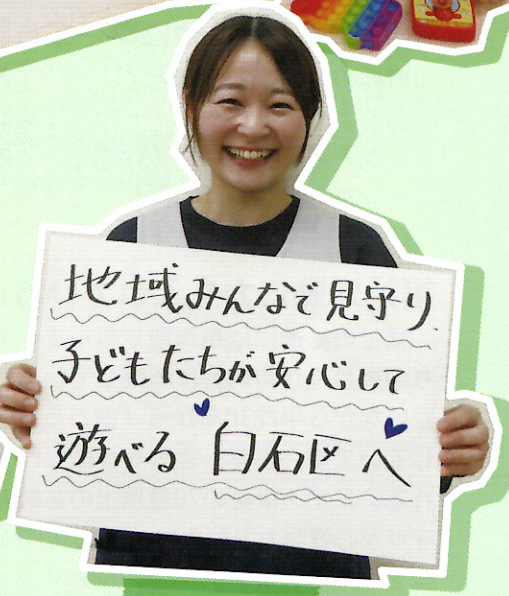 地域みんなで見守り
子どもたちが安心して
遊べる 白石区へ